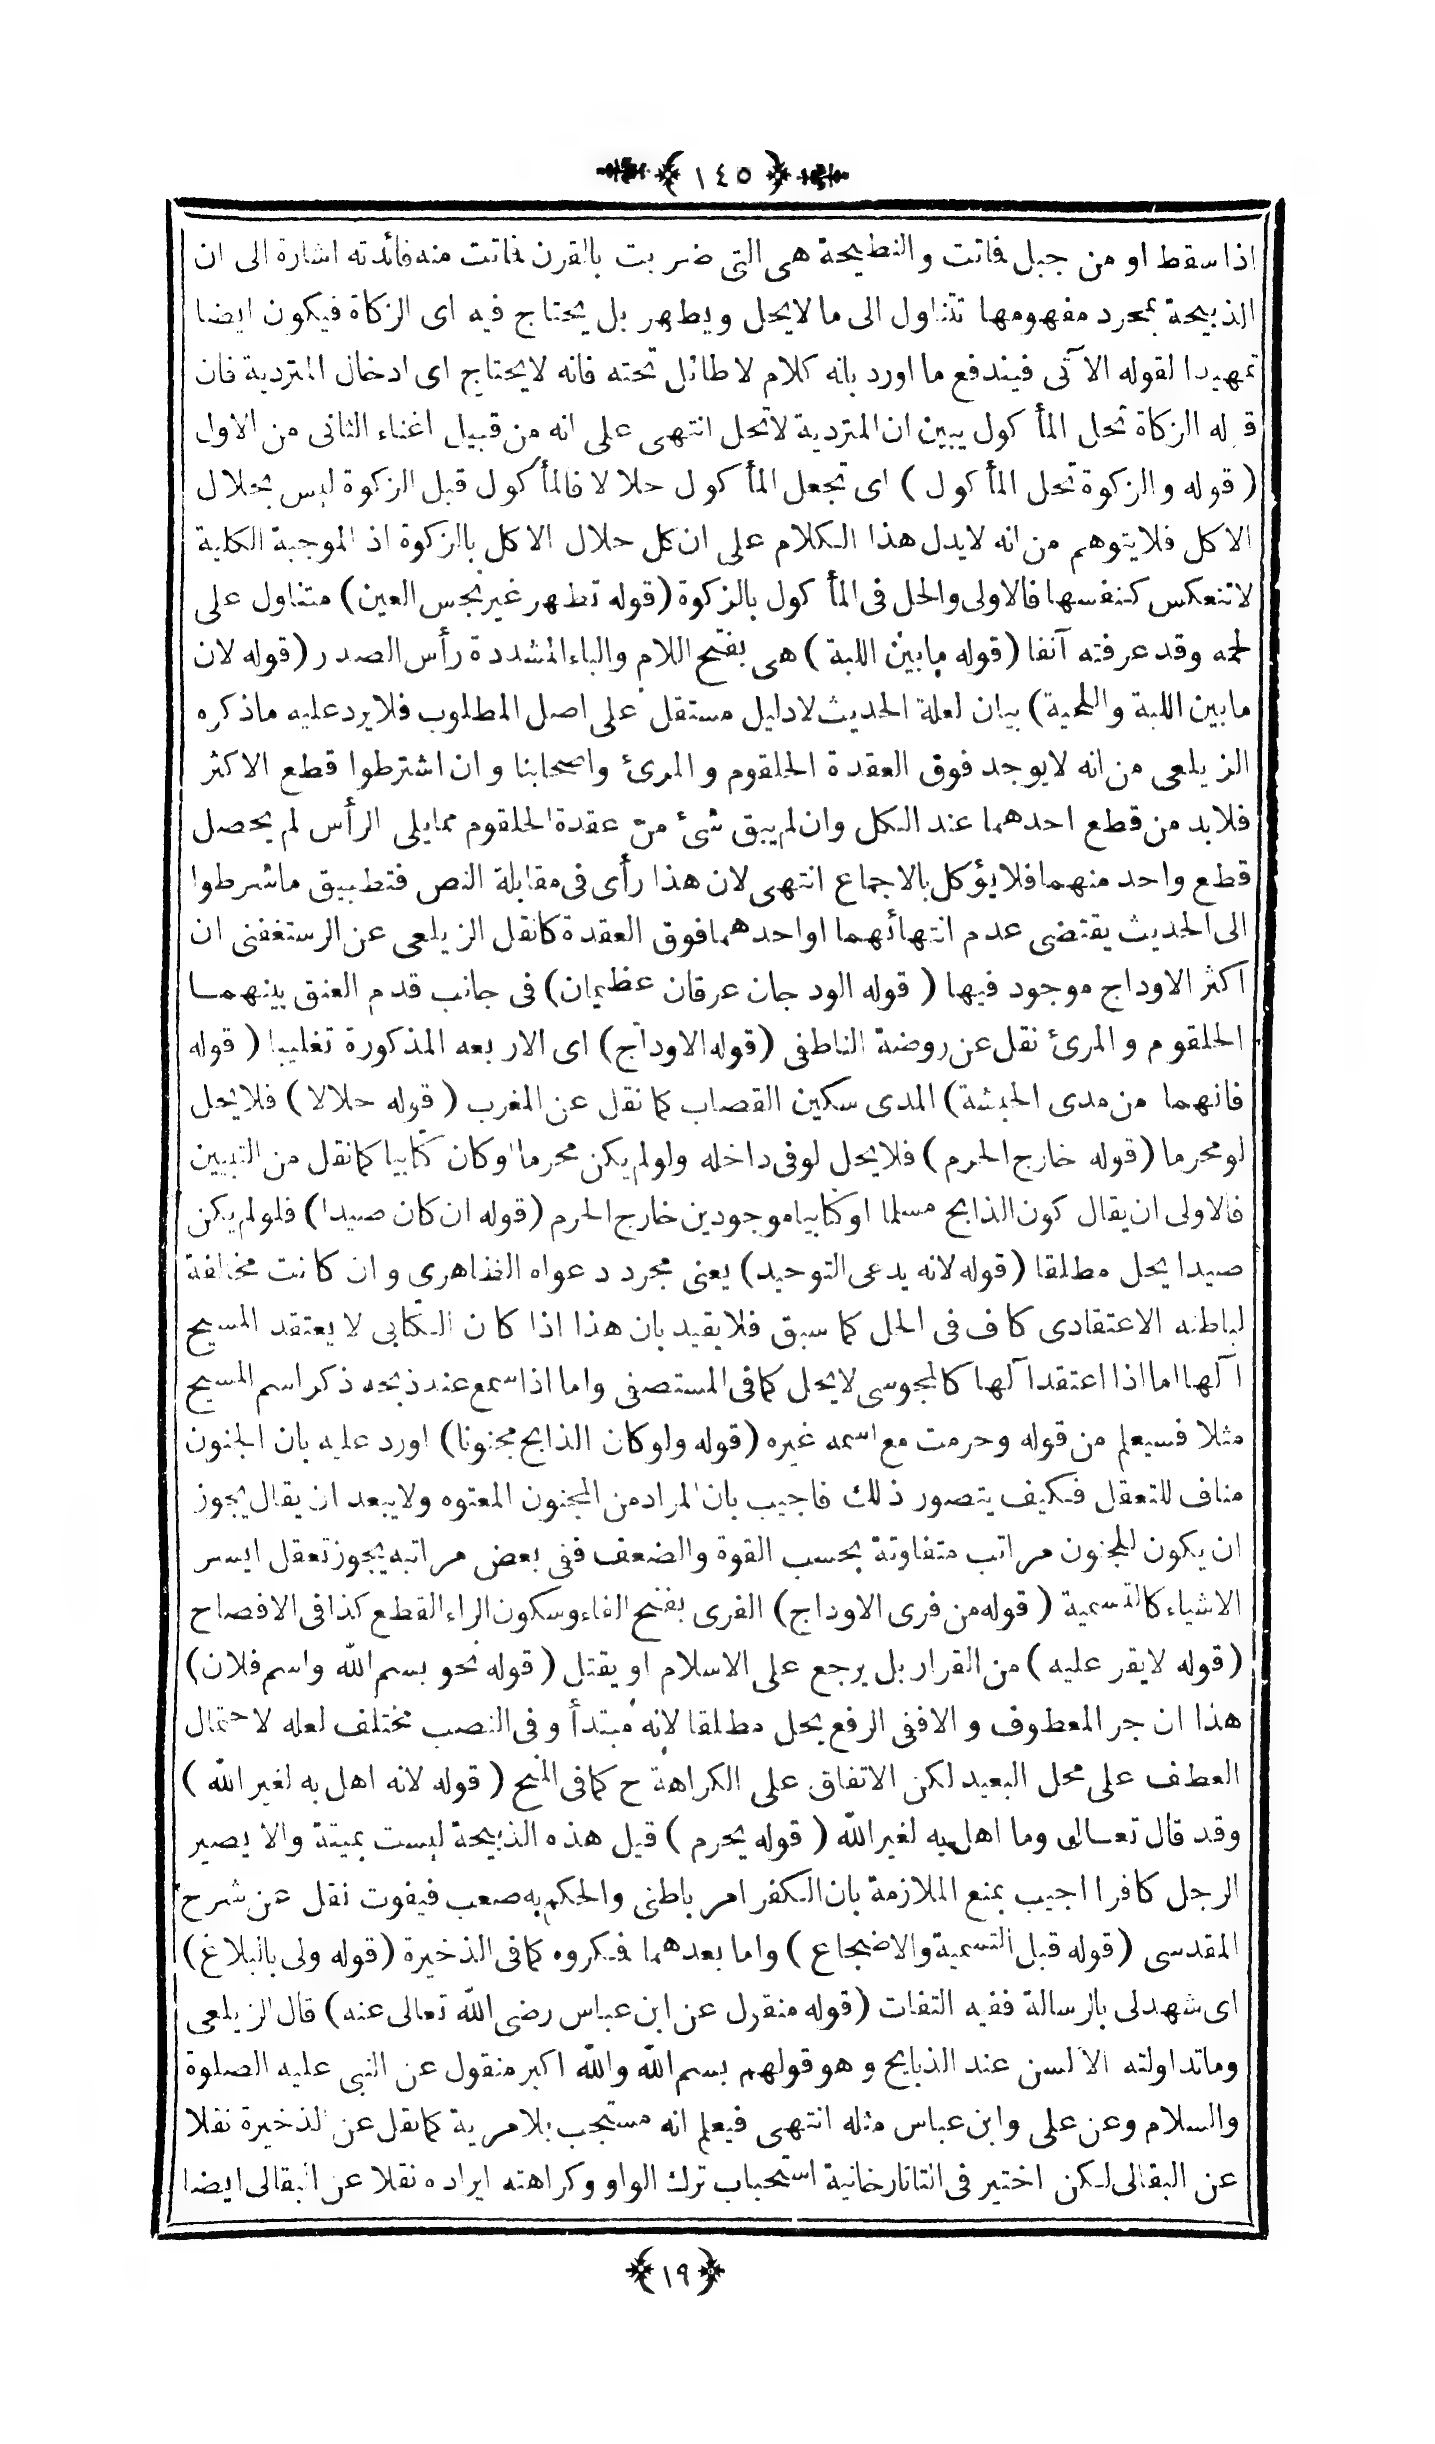 ﴿ ١٤٥ ﴾
اذا سقط او من جبل فاتت والنطيحة هى التى ضربت بالقرن فاتت منه فائدته اشارة الى ان
الذبيحة بمجرد مفهومها تتناول الى ما لايحل ويطهر بل يحتاج فيه اى الزكاة فيكون ايضا
تمهيدا لقوله الآتى فيندفع ما اورد بانه كلام لا طائل تحته فانه لايحتاج اى ادخال المتردية فان
قوله الزكاة تحل المأكول يبين ان المتردية لاتحل انتهى على انه من قبيل اغناء الثانى من الاول
( قوله والزكوة تحل المأكول ) اى تجعل المأكول حلالا فالمأكول قبل الزكوة ليس بحلال
الاكل فلايتوهم من انه لايدل هذا الكلام على ان كل حلال الاكل بالزكوة اذ الموجبة الكلية
لاتنعكس كنفسها فالاولى والحل فى المأكول بالزكوة (قوله تطهر غير نجس العين) متناول على
لحمه وقد عرفته آنفا (قوله مابين اللبة ) هى بفتح اللام والباء المشددة رأس الصدر (قوله لان
مابين اللبة واللحية) بيان لعلة الحديث لادليل مستقل على اصل المطلوب فلايرد عليه ماذكره
الزيلعى من انه لايوجد فوق العقدة الحلقوم و المرئ واصحابنا وان اشترطوا قطع الاكثر
فلابد من قطع احدهما عند الكل وان لم يبق شئ من عقدة الحلقوم ممايلى الرأس لم يحصل
قطع واحد منهما فلايؤكل بالاجماع انتهى لان هذا رأى فى مقابلة النص فتطبيق ماشرطوا
الى الحديث يقتضى عدم انتهائهما او احدهما فوق العقدة كانقل الزيلعى عن الرستغفنى ان
اكثر الاوداج موجود فيها ( قوله الودجان عرقان عظيمان) فى جانب قدم العنق بينهما
الحلقوم و المرئ نقل عن روضة الناطفى (قوله الاوداج) اى الاربعه المذكورة تغليبا ( قوله
فانهما من مدى الحبشة) المدى سكين القصاب كما نقل عن المغرب ( قوله حلالا ) فلايحل
لو محرما (قوله خارج الحرم ) فلايحل لو فى داخله ولو لم يكن محرما او كان كتابيا كمانقل من التبيين
فالاولى ان يقال كون الذابح مسلما او كتابيا موجودين خارج الحرم (قوله ان كان صيدا) فلو لم يكن
صيدا يحل مطلقا (قوله لانه يدعى التوحيد) يعنى مجرد دعواه الظاهرى وان كانت مخالفة
لباطنه الاعتقادى كاف فى الحل كما سبق فلايقيد بان هذا اذا كان الكتابى لا يعتقد المسيح
آلها اما اذا اعتقد آلها كالمجوسى لايحل كمافى المستصفى واما اذا سمع عند ذبحه ذكر اسم المسيح
مثلا فسيعلم من قوله وحرمت مع اسمه غيره (قوله ولو كان الذابح مجنونا) اورد عليه بان الجنون
مناف للتعقل فكيف يتصور ذلك فاجيب بان المراد من المجنون المعتوه ولايبعد ان يقال يجوز
ان يكون للجنون مراتب متفاوتة بحسب القوة والضعف ففى بعض مراتبه يجوز تعقل ايسر
الاشياء كالتسمية ( قوله من فرى الاوداج) الفرى بفتح الفاء وسكون الراء القطع كذا فى الافصاح
(قوله لايقر عليه ) من القرار بل يرجع على الاسلام او يقتل ( قوله نحو بسم الله واسم فلان)
هذا ان جر المعطوف و الاففى الرفع يحل مطلقا لانه مبتدأ وفى النصب مختلف لعله لاحتمال
العطف على محل البعيد لكن الاتفاق على الكراهة ح كمافى المنح ( قوله لانه اهل به لغير الله )
وقد قال تعالى وما اهل به لغير الله ( قوله يحرم ) قيل هذه الذبيحة ليست بميتة والا يصير
الرجل كافرا اجيب بمنع الملازمة بان الكفر امر باطنى والحكم به صعب فيفوت نقل عن شرح
المقدسى (قوله قبل التسمية والاضجاع ) واما بعدهما فكروه كمافى الذخيرة (قوله ولى بالبلاغ)
اى شهدلى بالرسالة ففيه التفات (قوله منقول عن ابن عباس رضى الله تعالى عنه) قال الزيلعى
وماتداولته الالسن عند الذبايح و هو قولهم بسم الله والله اكبر منقول عن النبى عليه الصلوة
والسلام وعن على وابن عباس مثله انتهى فيعلم انه مستحب بلامرية كمانقل عن الذخيرة نقلا
عن البقالى لكن اختير فى التاتارخانية استحباب ترك الواو وكراهته ايراده نقلا عن البقالى ايضا
﴿ ١٩ ﴾